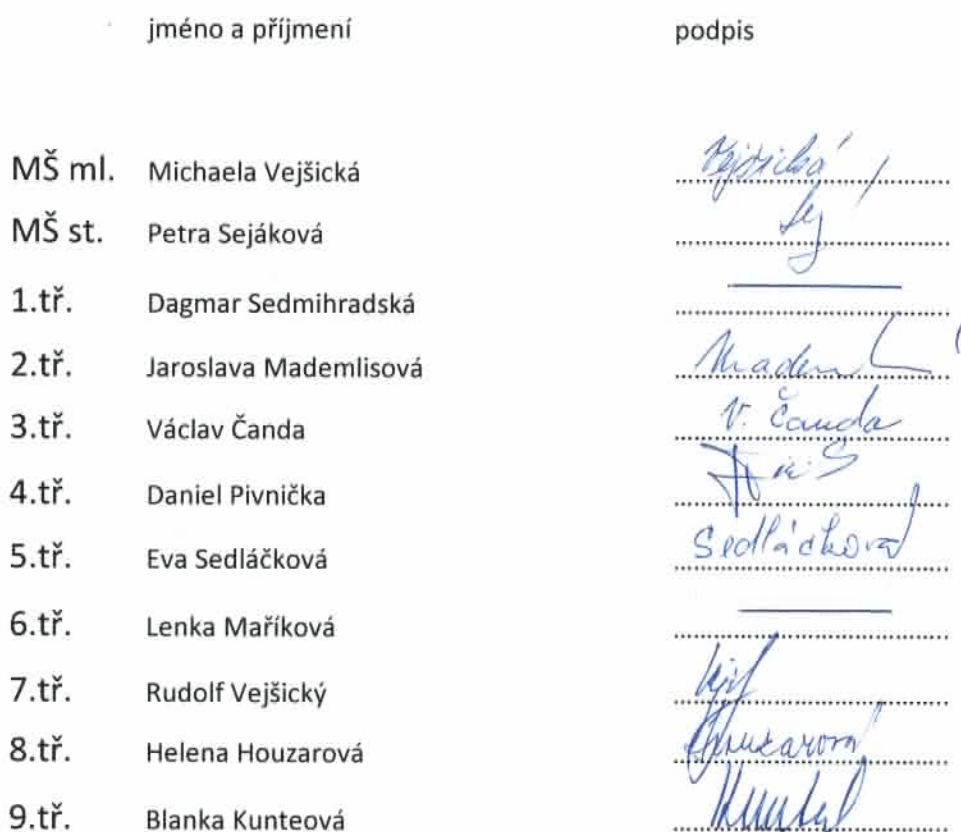 jméno a příjmení podpis
MŠ ml. Michaela Vejšická Vejšická
MŠ st. Petra Sejáková Sej
1.tř. Dagmar Sedmihradská
2.tř. Jaroslava Mademlisová Madem
3.tř. Václav Čanda V. Čanda
4.tř. Daniel Pivnička
5.tř. Eva Sedláčková Sedláčková
6.tř. Lenka Maříková
7.tř. Rudolf Vejšický
8.tř. Helena Houzarová Houzarová
9.tř. Blanka Kunteová